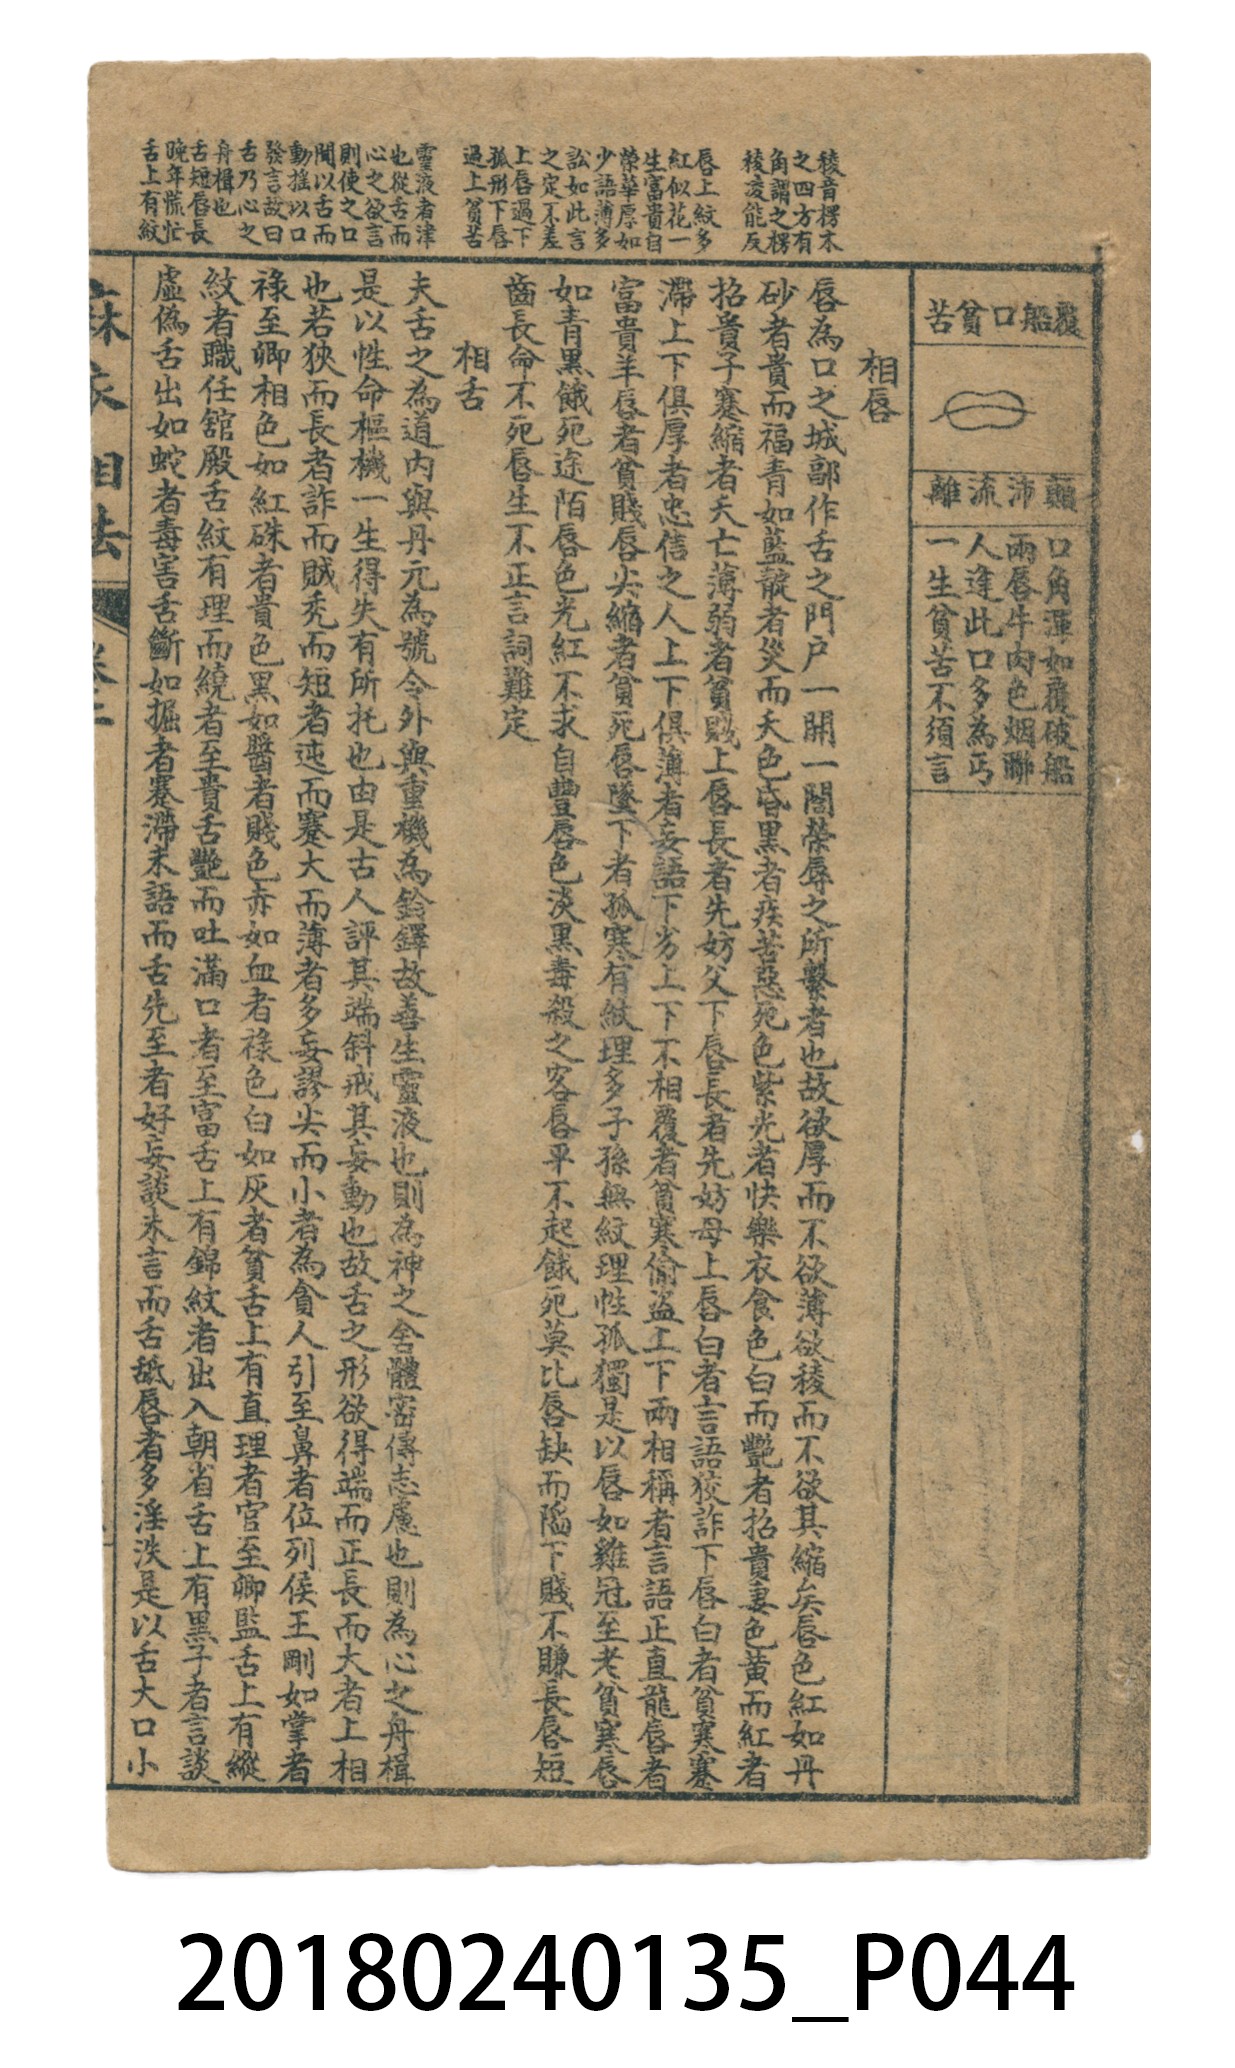 覆船口貧苦
顛沛流離
口角渾如覆破船
兩唇牛肉色烟聯
人逢此口多為丐
一生貧苦不須言
稜音楞木
之四方有
角謂之楞
稜凌能反
唇上紋多
紅似花一
生富貴自
榮華厚如
少語薄多
訟如此言
之定不差
上唇過下
孤形下唇
過上貧苦
靈液者津
也從舌而
心之欲言
則使之口
聞以舌而
動搖以口
發言故曰
舌乃心之
舟楫也
舌短唇長
晚年慌忙
舌上有紋
相唇
唇為口之城郭作舌之門戶一開一闔榮辱之所繫者也故欲厚而不欲薄欲稜而不欲其縮矣唇色紅如丹
砂者貴而福青如藍靛者災而夭色昏黑者疾苦惡死色紫光者快樂衣食色白而艷者招貴妻色黃而紅者
招貴子蹇縮者夭亡薄弱者貧賤上唇長者先妨父下唇長者先妨母上唇白者言語狡詐下唇白者貧寒蹇
滯上下俱厚者忠信之人上下俱薄者妄語下劣上下不相覆者貧寒偷盜上下兩相稱者言語正直龍唇者
富貴羊唇者貧賤唇尖縮者貧死唇墜下者孤寒有紋理多子孫無紋理性孤獨是以唇如雞冠至老貧寒唇
如青黑餓死途陌唇色光紅不求自豐唇色淡黑毒殺之客唇平不起餓死莫比唇缺而陷下賤不賺長唇短
齒長命不死唇生不正言詞難定
相舌
夫舌之為道內與丹元為號令外與重機為鈴鐸故善生靈液也則為神之舍體密傳志慮也則為心之舟楫
是以性命樞機一生得失有所托也由是古人評其端斜戒其妄動也故舌之形欲得端而正長而大者上相
也若狹而長者詐而賊禿而短者迍而蹇大而薄者多妄謬尖而小者為貪人引至鼻者位列侯王剛如掌者
祿至卿相色如紅硃者貴色黑如醬者賤色赤如血者祿色白如灰者貧舌上有直理者官至卿監舌上有縱
紋者職任舘殿舌紋有理而繞者至貴舌艷而吐滿口者至富舌上有錦紋者出入朝省舌上有黑子者言談
虛偽舌出如蛇者毒害舌斷如掘者蹇滯未語而舌先至者好妄談未言而舌舐唇者多淫泆是以舌大口小
麻衣相法 卷二
20180240135_P044